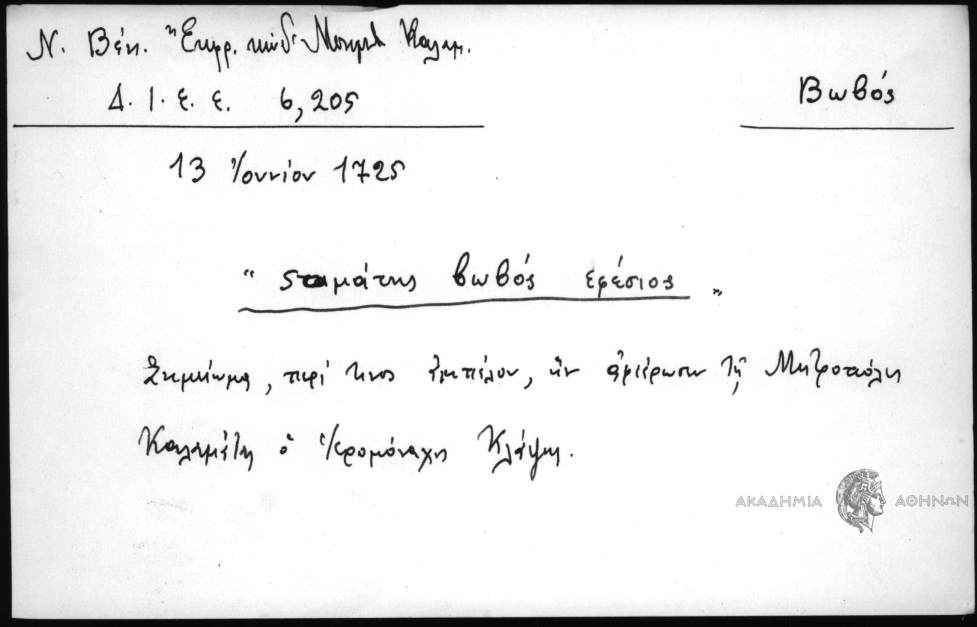 Ν. Βέη. Καλαμ.
Δ. Ι. Ε. Ε. 6, 205
Βωβός
13 Ἰουνίου 1725
" σταμάτης βωβός εφέσιος "
Σημείωμα, περί τινος ἀμπέλου, ἥν ἀφιέρωσεν τῇ Μητροπόλει
Καλαμάτης ὁ Ἱερομόναχος Κλάψης.
ΑΚΑΔΗΜΙΑ ΑΘΗΝΩΝ